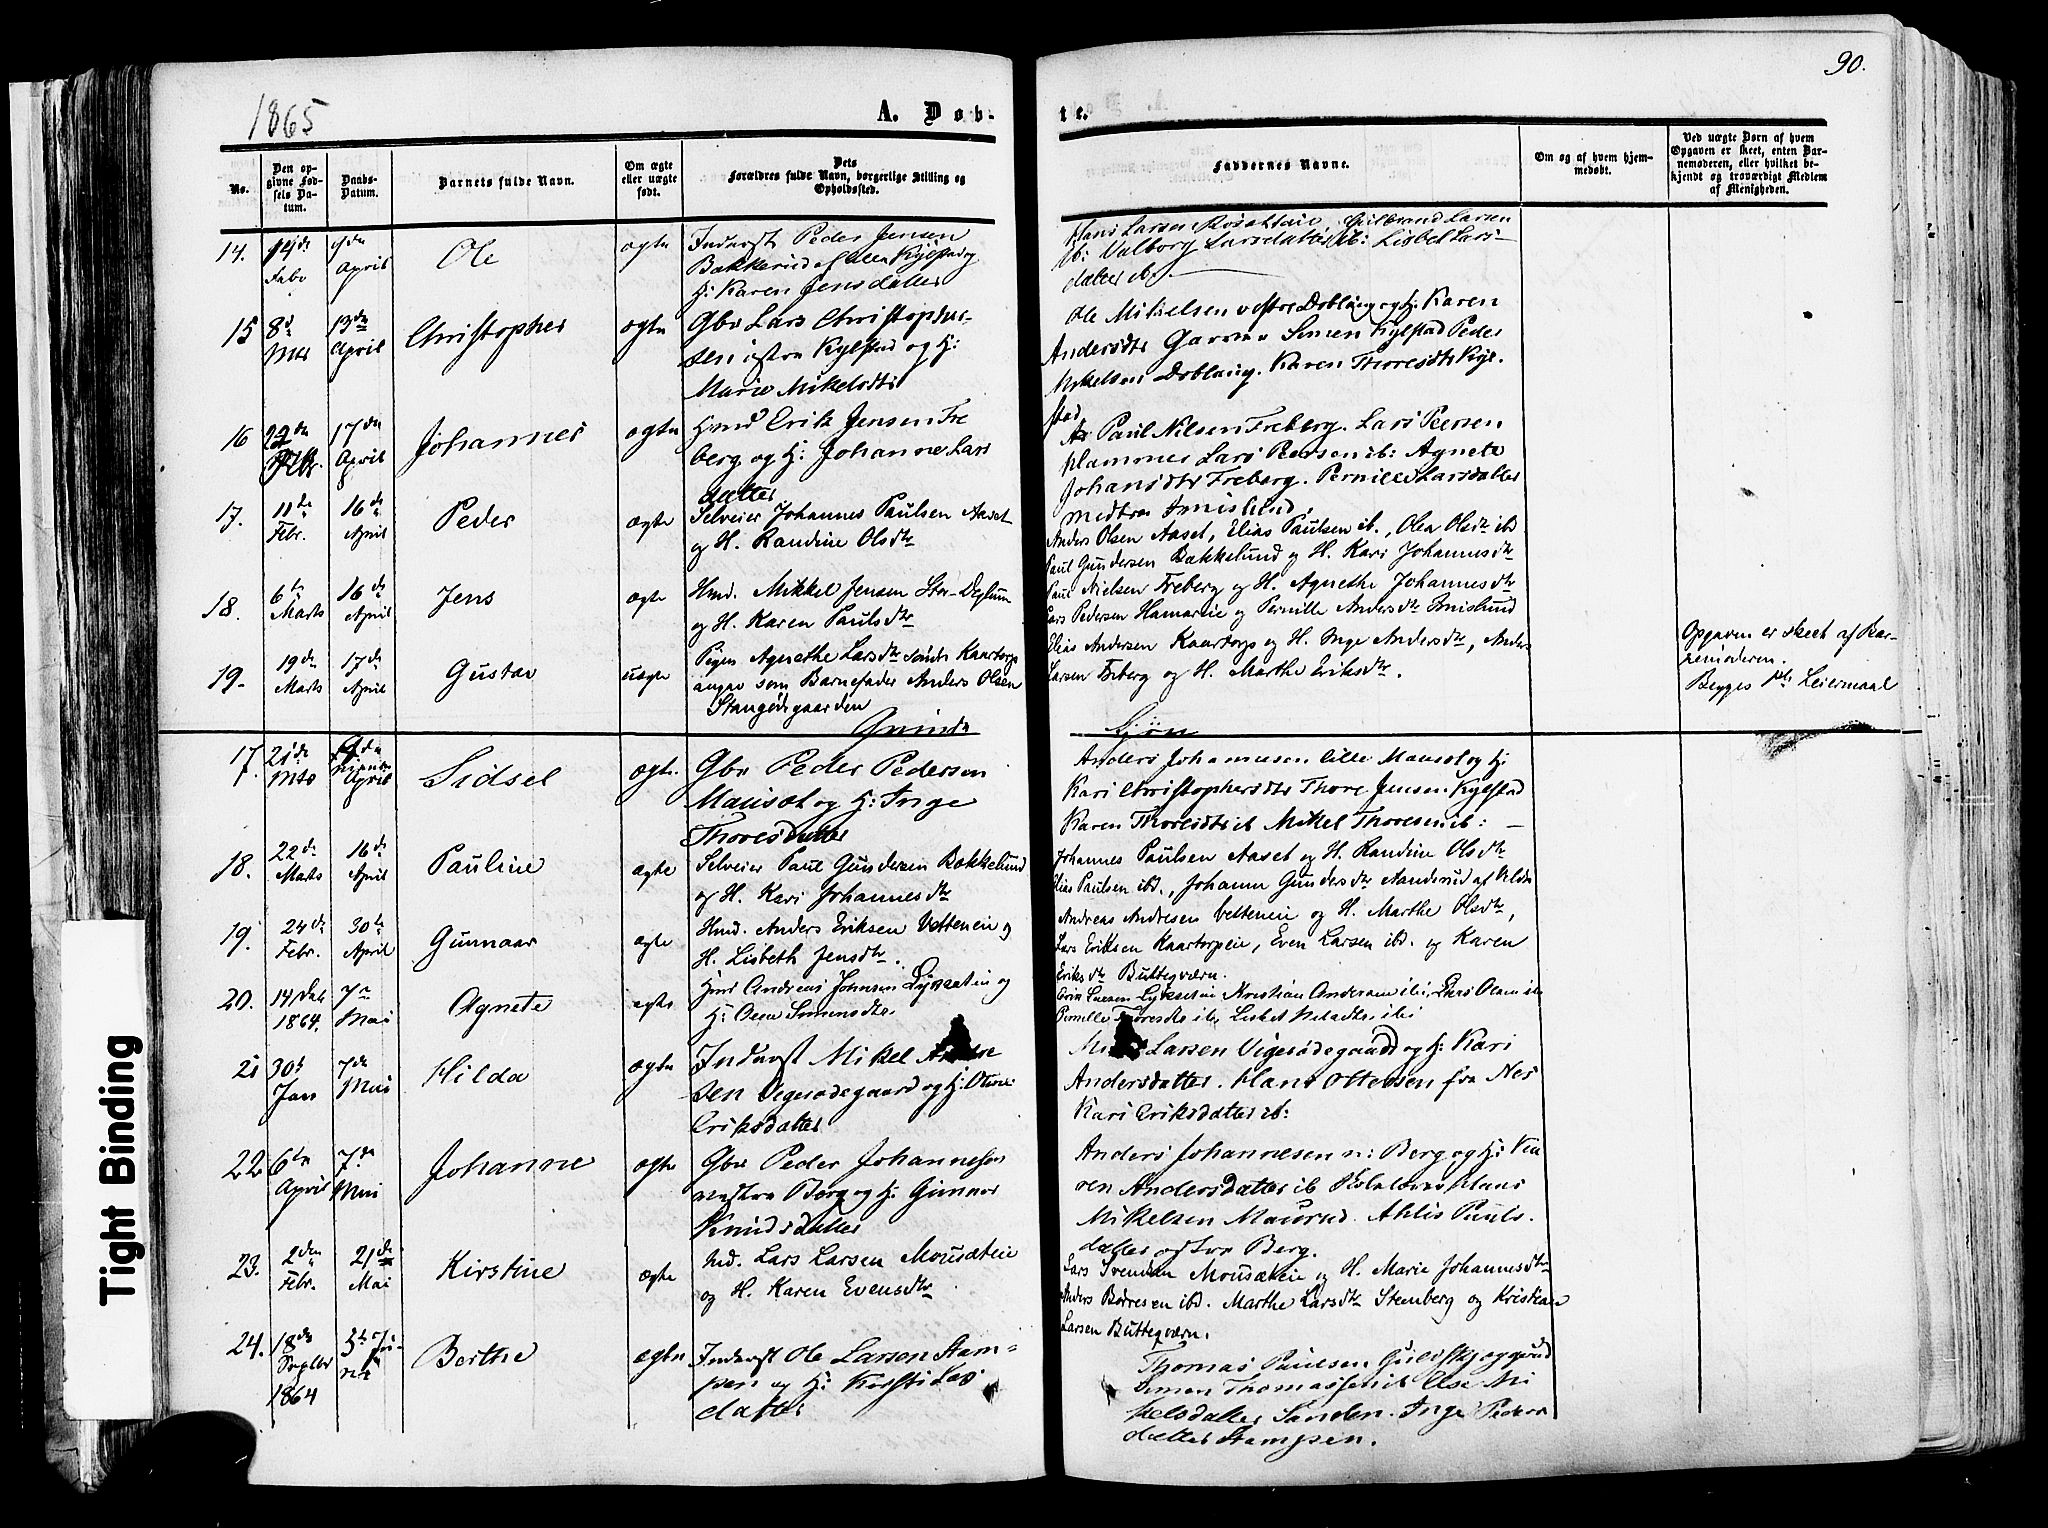 90.
1865
A. Døb-
te.
No.
Den op-
givne Fød-
sels Da-
tum.
Daabs-
Datum.
Barnets fulde Navn.
Om ægte
eller uægte
født.
Dets
Forældres fulde Navn, borgerlige Stilling og
Opholdssted.
Faddernes Navne.
Om og af hvem hjem-
medøbt.
Ved uægte Børn af hvem
Opgaven er skeet, enten Bar-
nemoderen, eller hvilket be-
kjendt og troværdigt Medlem
af Menigheden.
14. 14de Febr 9de April Ole ægte
Inderst Peder Jensen
Bakkerud af Kylstad og
H: Karen Jensdatter
Hans Larsen Gulbrand Larsen
ib: Valborg Larsdatter ib: Lisbet Lars-
datter ib.
15 8d Mts 13de April Christopher ægte
Gbr Lars Christopher-
sen Kylstad og H:
Marie Mikelsdtr
Ole Mikelsen vestre Doblaug og H: Karen
Andersdtr Simen Kylstad Peder
Mikelsen Doblaug. Karen Thoresdtr Kyl-
stad
16 22de Febr. 17de April Johannes ægte
Hmd Erik Jensen Fre
berg og H: Johanne Lars
datter
Paul Nilsen Freberg. Lars Peersen
Hammer Lars Peersen ib: Agnete
Johansdtr Freberg. Pernille Larsdatter
Imislund.
17. 11te Febr. 16de April Peder ægte
Selveier Johannes Paulsen Aaset
og H. Randine Olsdtr
Anders Olsen Aaset, Elias Paulsen ib., Olea Olsdtr ibd
Paul Gundersen Bakkelund og H. Kari Johannesdtr
18. 6te Marts 16de April Jens ægte
Hmd. Mikkel Jensen Stor-Deglum
og H. Karen Paulsdtr
Paul Nielsen Freberg og H. Agnethe Johannesdtr
Lars Pedersen Hamareie og Pernille Andersdtr Imislund
19. 19de Marts 17de April Gustav uægte
Pigen Agnethe Larsdtr søndr Kaartorp
angav som Barnefader Anders Olsen
Stangødegaarden
Elias Andersen Kaartorp og H. Inge Andersdtr, Anders
Larsen Freberg og H. Marthe Eriksdtr.
Opgaven er skeet af Bar-
nemoderen.
Begges 1ste Leiermaal
17. 21de Mts April Sidsel ægte.
Gbr Peder Pedersen
Mausæt og H: Inge
Thoresdatter
Anders Johannesen lille Mausæt og H:
Kari Christophersdtr Thore Jensen Kylstad
Karen Thoresdtr ib Mikel Thoresen ib: —
18. 22de Marts 16de April Pauline ægte
Selveier Paul Gundersen Bakkelund
og H. Kari Johannesdtr
Johannes Paulsen Aaset og H. Randine Olsdtr
Elias Paulsen ibd., Johanne Gundersdtr Aanderud af Vildn
19. 24de Febr. 30te April Gunnar ægte
Hmd. Anders Eriksen Vetteneie og
H. Lisbeth Jensdtr.
Andreas Andresen Vetteneie og H. Marthe Olsdtr,
Lars Eriksen Kaartorpeie, Even Larsen ibd. og Karen
Eriksdtr Buttegværn.
20. 14 1864. 7de Mai Agnete ægte
Hmd Andreas Johnsen Lykset eie og
H: Olea Simensdtr.
Larsen Lykset eie Kristian Andersen
Pernille Thoresdtr
21 30te Jan 7de Mai Hilda ægte
Inderst Mikel Andre
sen Vegesødegaard og H:
Eriksdatter
Larsen Vegesødegaard og H: Kari
Andersdatter. Hans Ottersen fra Nes
Kari Eriksdatter ib:
22 6te April 7de Mai Johanne ægte
Gbr Peder Johannesen
vestre Berg og H: Gunnor
Knudsdatter
Anders Johannesen n: Berg og H: Ka
ren Andersdatter ib Hans
Mikelsen Maurud. Ahlis Pauls.
datter østre Berg.
23. 2den Febr. 21de Mai Kirstine ægte
Md. Lars Larsen Mousæteie
og H. Karen Evensdtr.
Lars Svendsen Mousæteie og H. Marie Johannesdtr
Anders Børresen ibd. Marthe Larsdtr Stenberg og Kristian
Larsen Buttegværn.
24. 18de Septbr 1864 5te Juni Berthe ægte
Inderst Ole Larsen Stam-
pen og H: Kirsti Lars
datter
Thomas Paulsen
Simen Thomassen ib Else Mi
kelsdatter Sanden. Inge Peders
datter Stampen.
Tight Binding